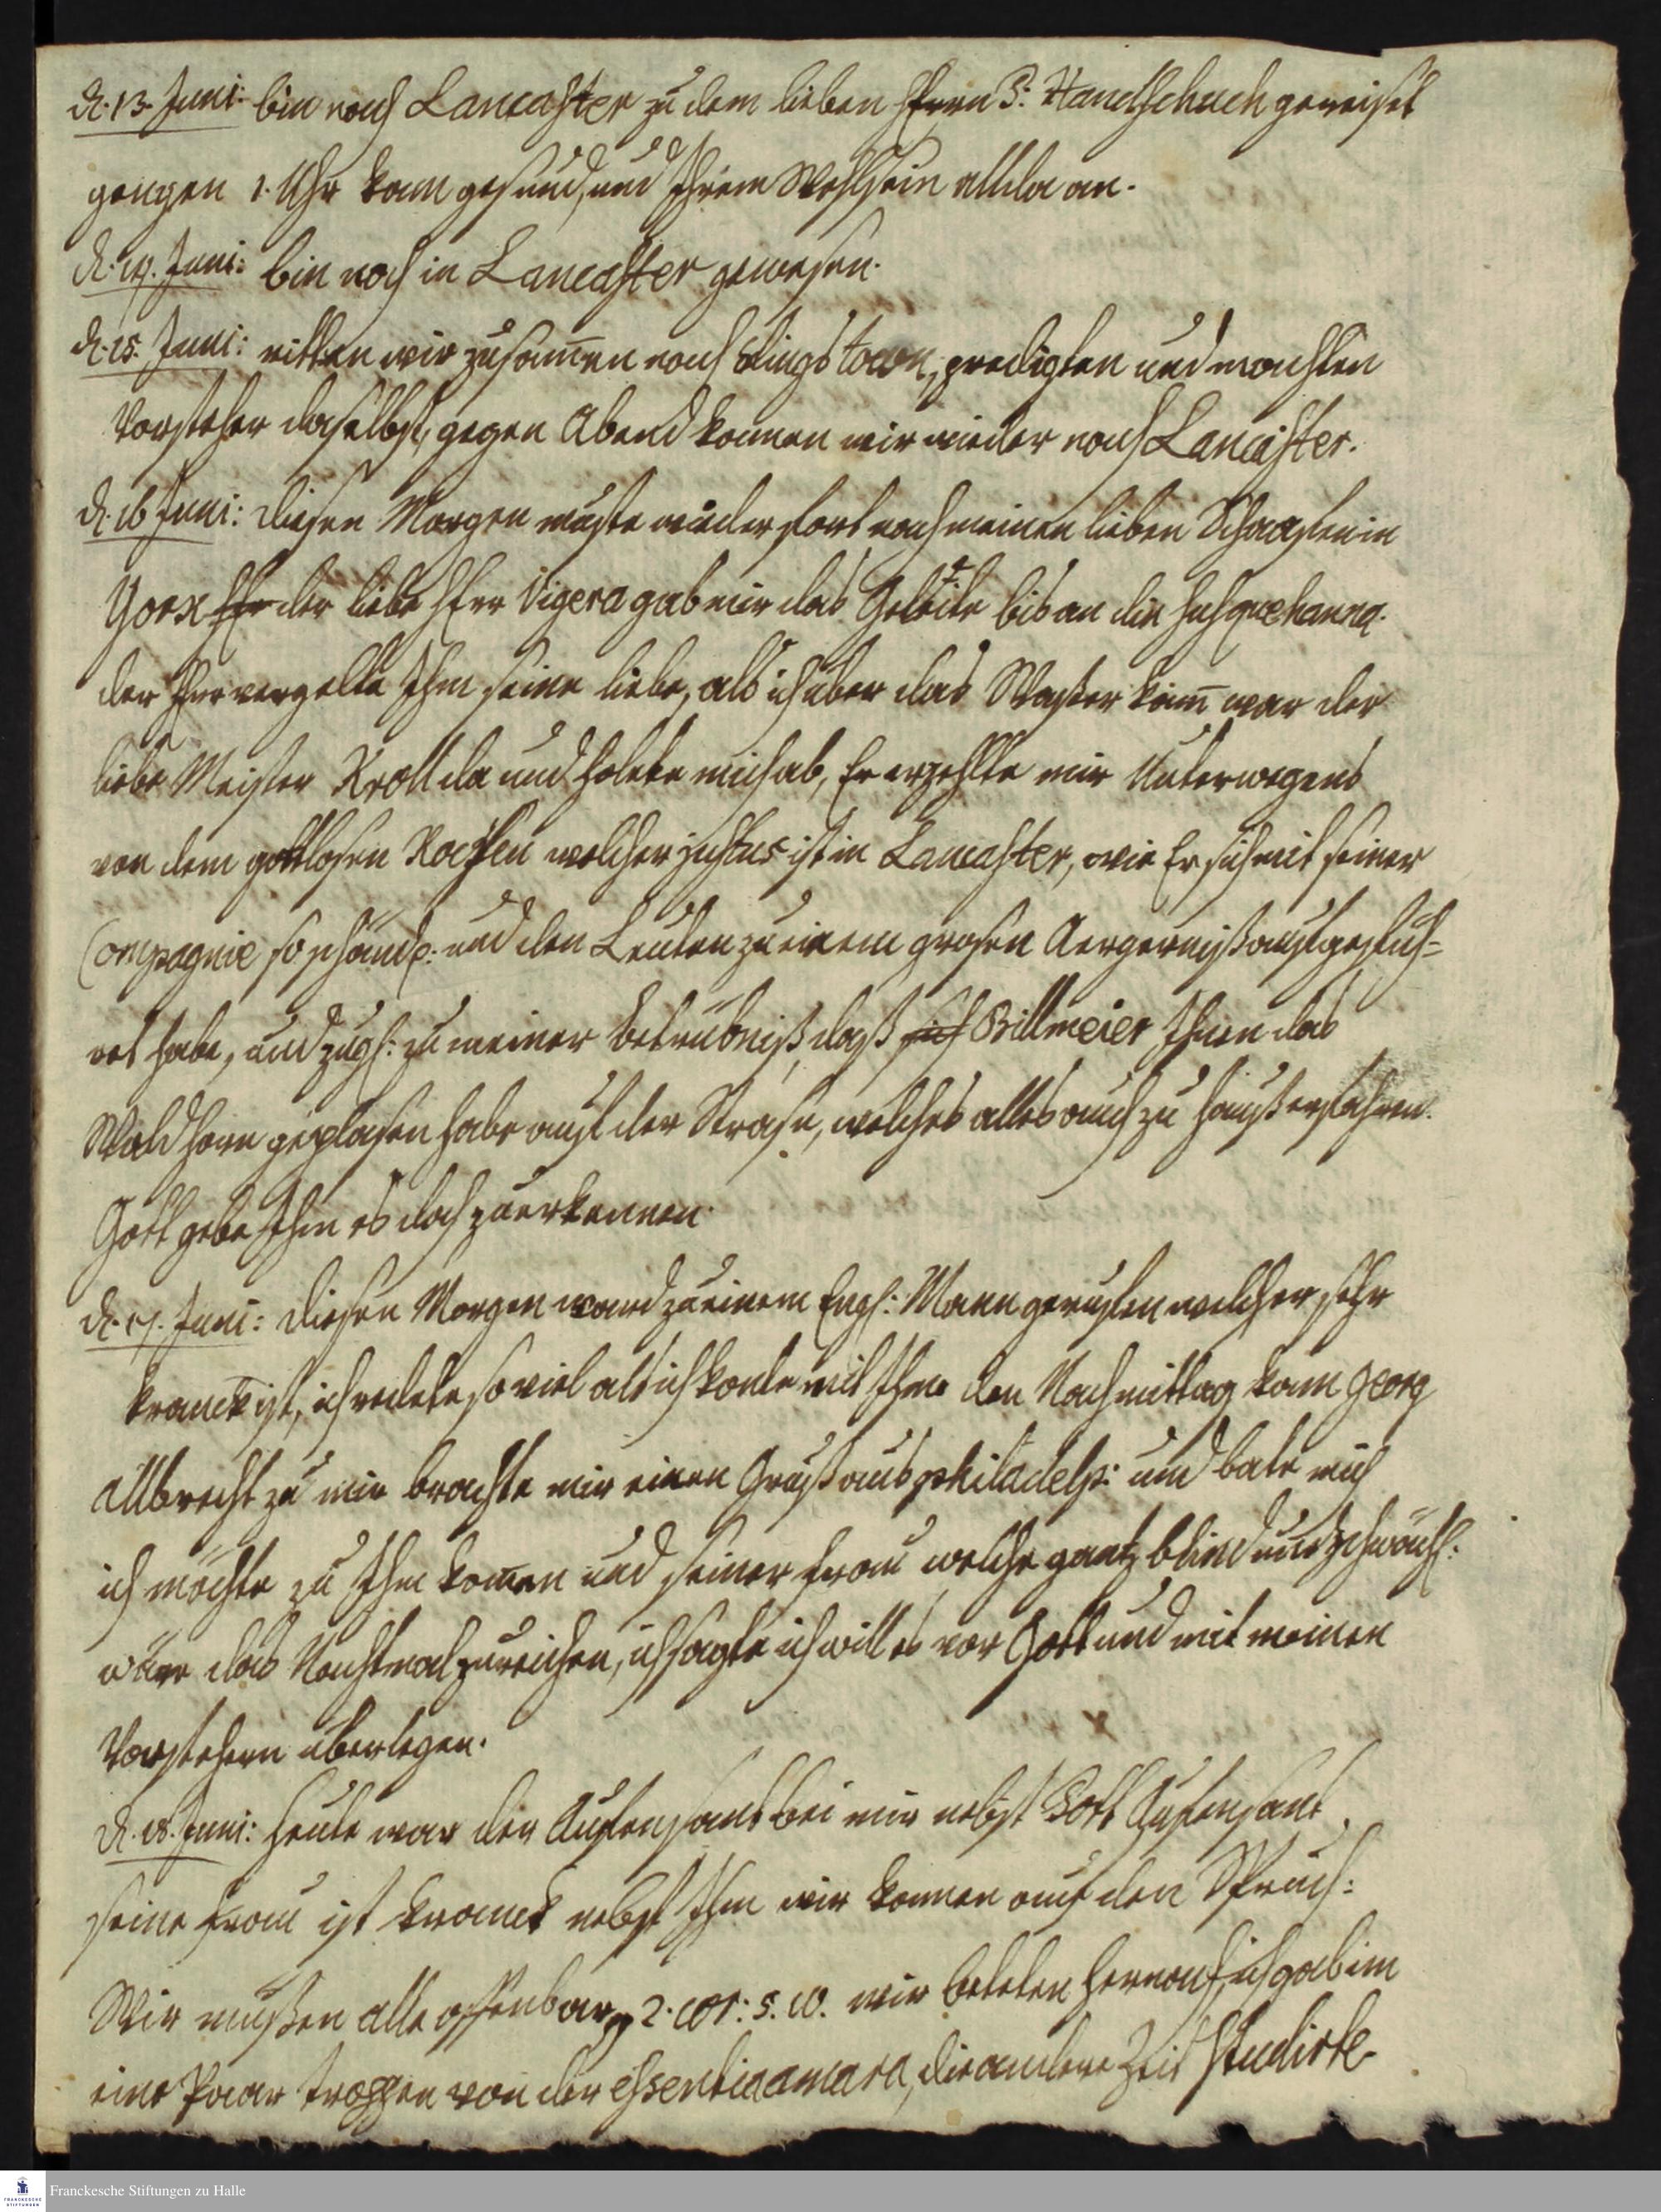 d. 13. Juni: bin nach Lancaster zu dem lieben Herrn P: Handschuch gereiset
gengen 1. Uhr kam gesund, und Ihrem Wohlsein allda an.
d. 14. Juni: bin noch in Lancaster gewesen.
d. 15. Juni: ritten wir zusam̅en nach Kingstown, predigten und machten
Vorsteher daselbst, gegen Abend kamen wir wieder nach Lancaster.
d. 16 Juni: diesen Morgen muste wieder fort nach meinen lieben Schaafen in
York der liebe Herr Vigera gab mir das Geleite bis an die Susquehanna.
der Herr vergelte Ihm seine liebe, als ich über das Waßer kam̅ war der
liebe Meister Kroll da und holete mich ab, Er erzehlte mir Unterwegens
von dem gottlosen welcher Justus ist in Lancaster, wie Er sich mit seiner
Compagnie so schändl: und den Leuten zu einem grosen Aergerniß aufgefüh-
ret habe, und zugl: zu meiner betrübniß, daß Billmeier Ihnen das
Waldhorn geplasen habe auf der Strase, welches alles auch zu Hauß erfahren.
Gott gebe Ihm es doch zuerkennen.
d. 17. Juni: diesen Morgen ward zu einem Engl: Mann gerufen welcher sehr
kranck ist, ich redete so viel als ich konte mit Ihm. den Nachmittag kam Georg
Allbrecht zu mir brachte mir einen Gruß aus philadelp: und bate mich
ich möchte zu Ihm kom̅en und seiner Frau welche gantz blind und schwächl:
wäre das Nachtmal zureichen, ich sagte ich will es vor Gott und mit meinen
Vorstehern überlegen.
d. 18. Juni: Heute war der bei mir nebst
seine Frau ist kranck nebst Ihm wir kamen auf den Spruch:
Wir müßen alle offenbar pp 2. cor: 5. 10. wir beteten hernach, ich gab im
eine Paar tropfen von der essentia amara, die andere Zeit studirte
Franckesche Stiftungen zu Halle